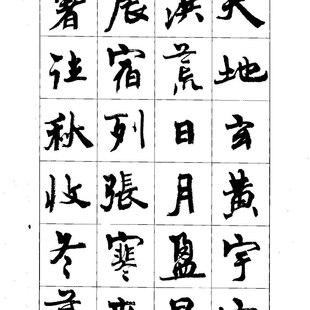 天地玄黃宇
洪荒日月盈
辰宿列張寒
暑往秋收冬